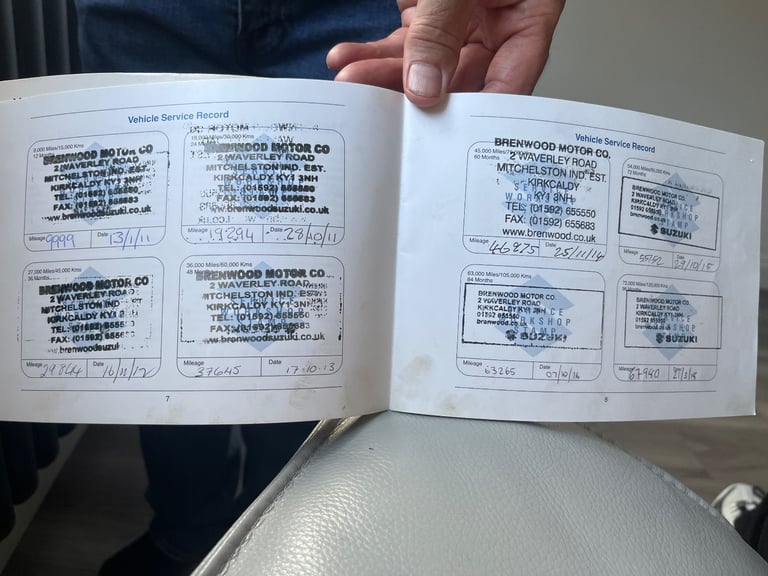 Vehicle Service Record
9,000 Miles/15,000 Kms
BRENWOOD MOTOR CO
2 WAVERLEY ROAD
MITCHELSTON IND. EST.
KIRKCALDY KY1 3NH
TEL: (01592) 655550
FAX: (01592) 655683
www.brenwoodsuzuki.co.uk
Mileage 9999 Date 13/1/11
18,000 Miles/30,000 Kms
BRENWOOD MOTOR CO
2 WAVERLEY ROAD
MITCHELSTON IND. EST.
KIRKCALDY KY1 3NH
TEL: (01592) 655550
FAX: (01592) 655683
www.brenwoodsuzuki.co.uk
Mileage 19294 Date 28/10/11
27,000 Miles/45,000 Kms
36 Months
BRENWOOD MOTOR CO
2 WAVERLEY ROAD
MITCHELSTON IND
KIRKCALDY KY1
TEL: (01592)
FAX: (01592)
www.brenwoodsuzuki
Mileage 29844 Date 16/11/12
36,000 Miles/60,000 Kms
BRENWOOD MOTOR CO
2 WAVERLEY ROAD
MITCHELSTON IND. EST.
KIRKCALDY KY1 3NH
TEL: (01592) 655550
FAX: (01592) 655683
www.brenwoodsuzuki.co.uk
Mileage 37645 Date 17.10.13
7
Vehicle Service Record
45,000 Miles/
60 Months
BRENWOOD MOTOR CO.
2 WAVERLEY ROAD
MITCHELSTON IND. EST.
KIRKCALDY
KY1 3NH
TEL (01592) 655550
FAX: (01592) 655683
www.brenwood.co.uk
Mileage 46875 Date 25/11/14
54,000 Miles/90,000 Kms
72 Months
BRENWOOD MOTOR CO.
2 WAVERLEY ROAD
KIRKCALDY
01592
brenwood.co
SUZUKI
Mileage Date 29/10/15
63,000 Miles/105,000 Kms
84 Months
BRENWOOD MOTOR CO.
2 WAVERLEY ROAD
KIRKCALDY KY1 3NH
01592 655550
brenwood.co
SUZUKI
Mileage 63265 Date 07/10/16
72,000 Miles/120,000 Kms
BRENWOOD MOTOR CO.
2 WAVERLEY ROAD
KIRKCALDY KY1 3NH
01592 655550
brenwood.co
SUZUKI
Mileage 67940 Date
8